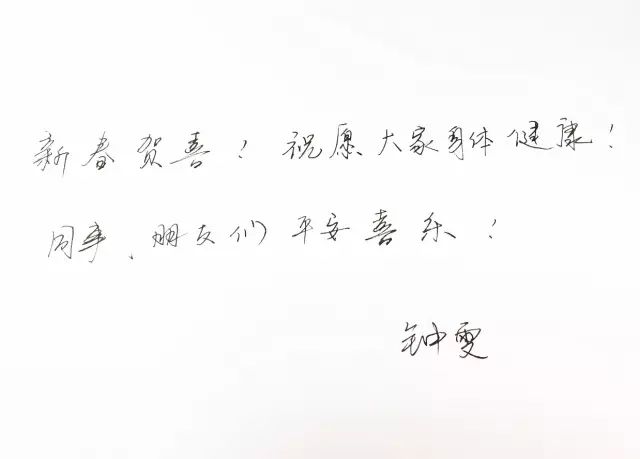 新春贺喜！祝愿大家身体健康！
同事、朋友们平安喜乐！
钟雯